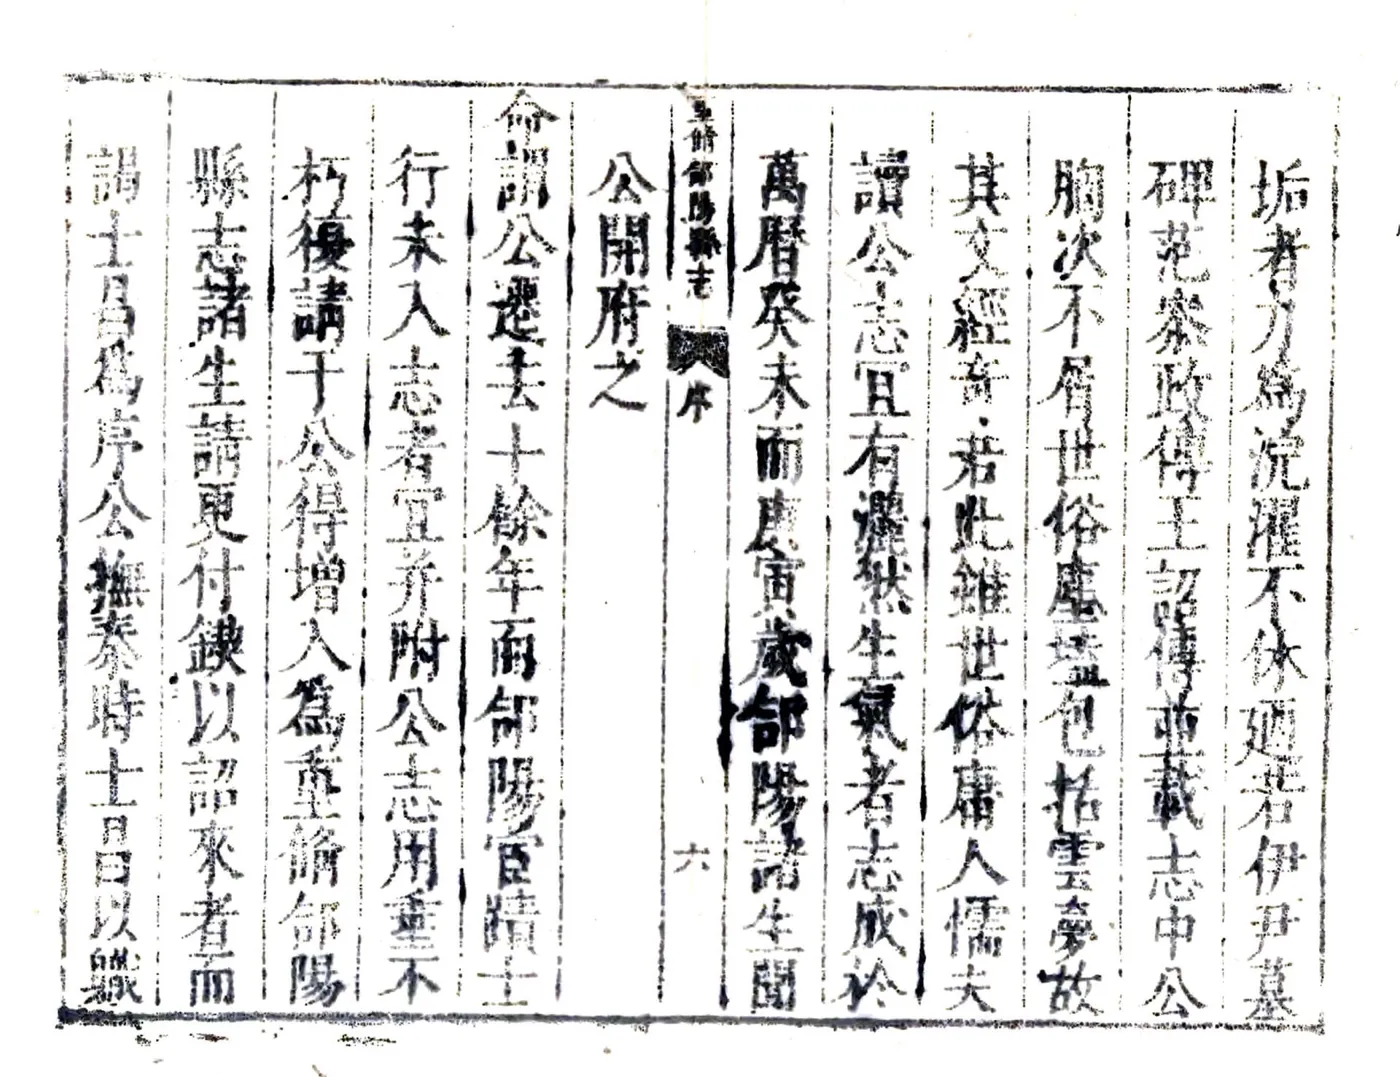 垢者乃為浣濯不休廼若伊尹墓
碑范參政傳王詔傳並載志中公
胸次不屑世俗塵壒包括雲夢故
其文經奇若此雖世俗庸人懦夫
讀公志宜有灑然生氣者志成於
萬曆癸未而庚寅歲郃陽諸生聞
重脩郃陽縣志 序 六
公開府之
命謂公遷去十餘年而郃陽宦蹟士
行未入志者宜并附公志用垂不
朽復請于公得增入為重脩郃陽
縣志諸生請更付鍥以詔來者而
謁士昌為序公撫秦時士昌以職